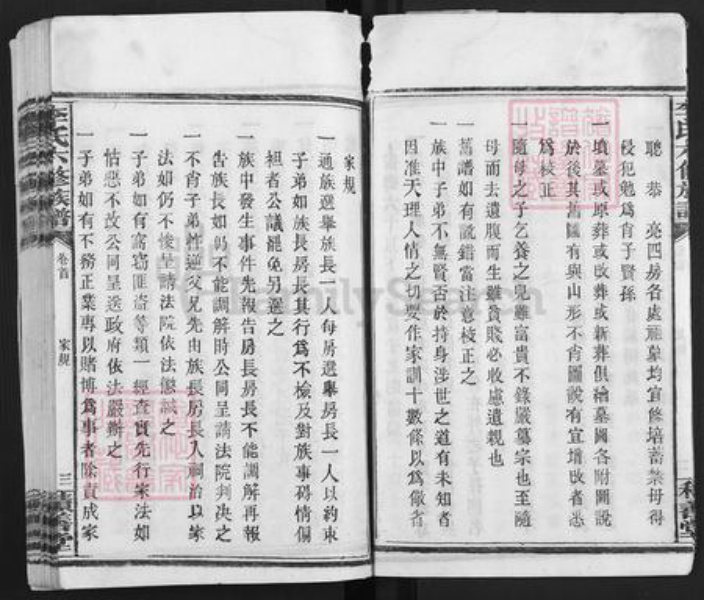 聰恭亮四房各處龍墓均宜修培蓄禁毋得
侵犯勉爲肖子賢孫
一墳墓或原葬或改葬或新葬俱繪墓圖各附圖說
於後其舊圖有與山形不肖圖說有宜增改者悉
爲校正
一隨母之子乞養之兒雖富貴不錄嚴墓宗也至隨
母而去遺腹而生雖貧賤必收慮遺親也
一舊譜如有訛錯當注意校正之
一族中子弟不無賢否於持身涉世之道有未知者
因准天理人情之切要作家訓十數條以爲儆省
家規
一通族選舉族長一人每房選舉房長一人以約束
子弟如族長房長其行爲不檢及對族事碍情偏
袒者公議罷免另選之
一族中發生事件先報告房長房長不能調解再報
告族長如仍不能調解時公同呈請法院判决之
一不肖子弟忤逆父兄先由族長房長入祠治以家
法如仍不悛呈請法院依法懲誡之
一子弟如有窩竊匪盜等類一經查實先行家法如
怙惡不改公同呈送政府依法嚴辦之
一子弟如有不務正業專以賭博爲事者除責成家
李氏六修族譜
卷首
家規
三
FamilySearch